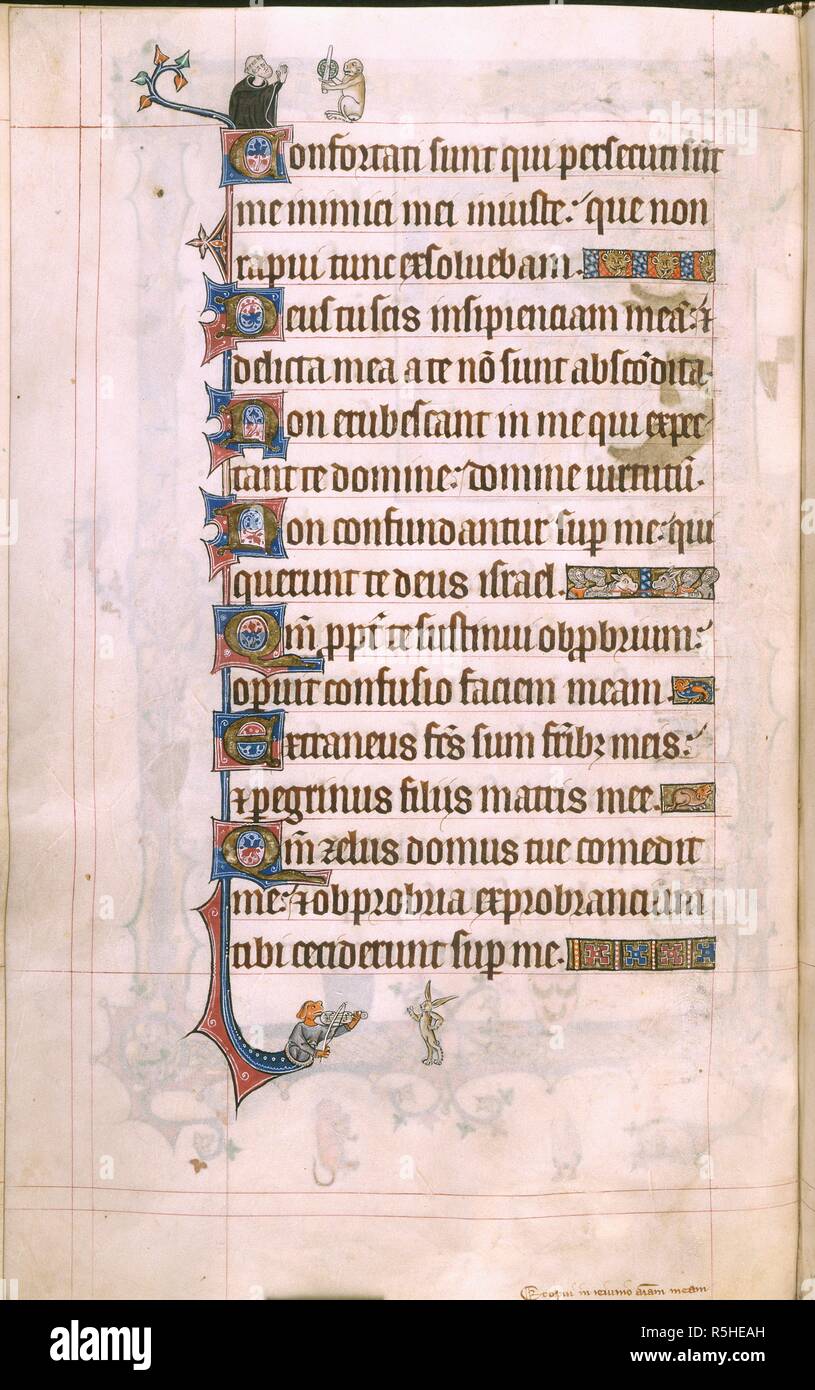 Confortati sunt qui persecuti sūt
me inimici mei iniuste: que non
rapui tunc exsoluebam.
Deus tu scis insipienciam meā: ⁊
delicta mea a te nō sunt abscōdita.
Non erubescant in me qui expec
tant te domine: domine uirtutū.
Non confundantur sup me: qui
querunt te deus israel.
Qm̄ ppt̄ te sustinui obpbrium:
opuit confusio faciem meam.
Extraneus fc̄s sum fr̄ibꝫ meis:
⁊ pegrinus filiis matris mee.
Qm̄ zelus domus tue comedit
me: ⁊ obprobria exprobrancium
tibi ceciderunt sup me.
Et opui in ieiunio aīam meam
alamy
Image ID: R5HEAH
www.alamy.com